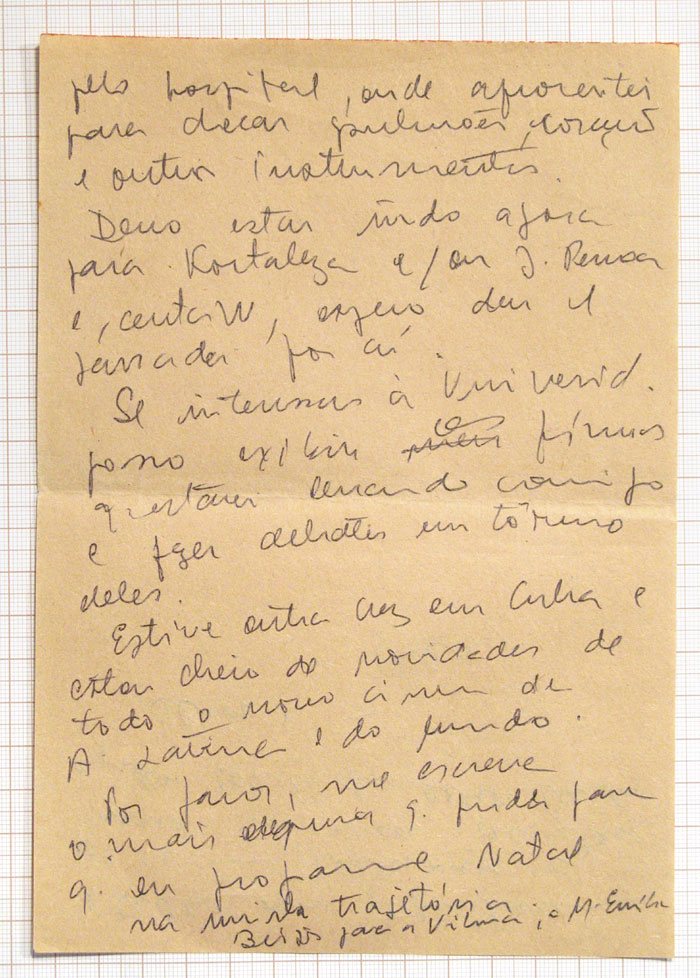 pelo hospital, onde aproveitei
para checar pulmões, coração
e outros instrumentos.
Devo estar indo agora
para Fortaleza e/ou J. Pessoa
e, espero dar
passada por aí.
Se interessar à Universid.
posso exibir os filmes
q. estarei levando comigo
e fazer debates em tôrno
deles.
Estive outra vez em Cuba e
estou cheio de novidades de
todo o novo cinema de
A. Latina e do mundo.
Por favor, me escreva
o mais q. puder para
q. eu programe Natal
na minha trajetória.
Beijos para a Vilma e M. Emília